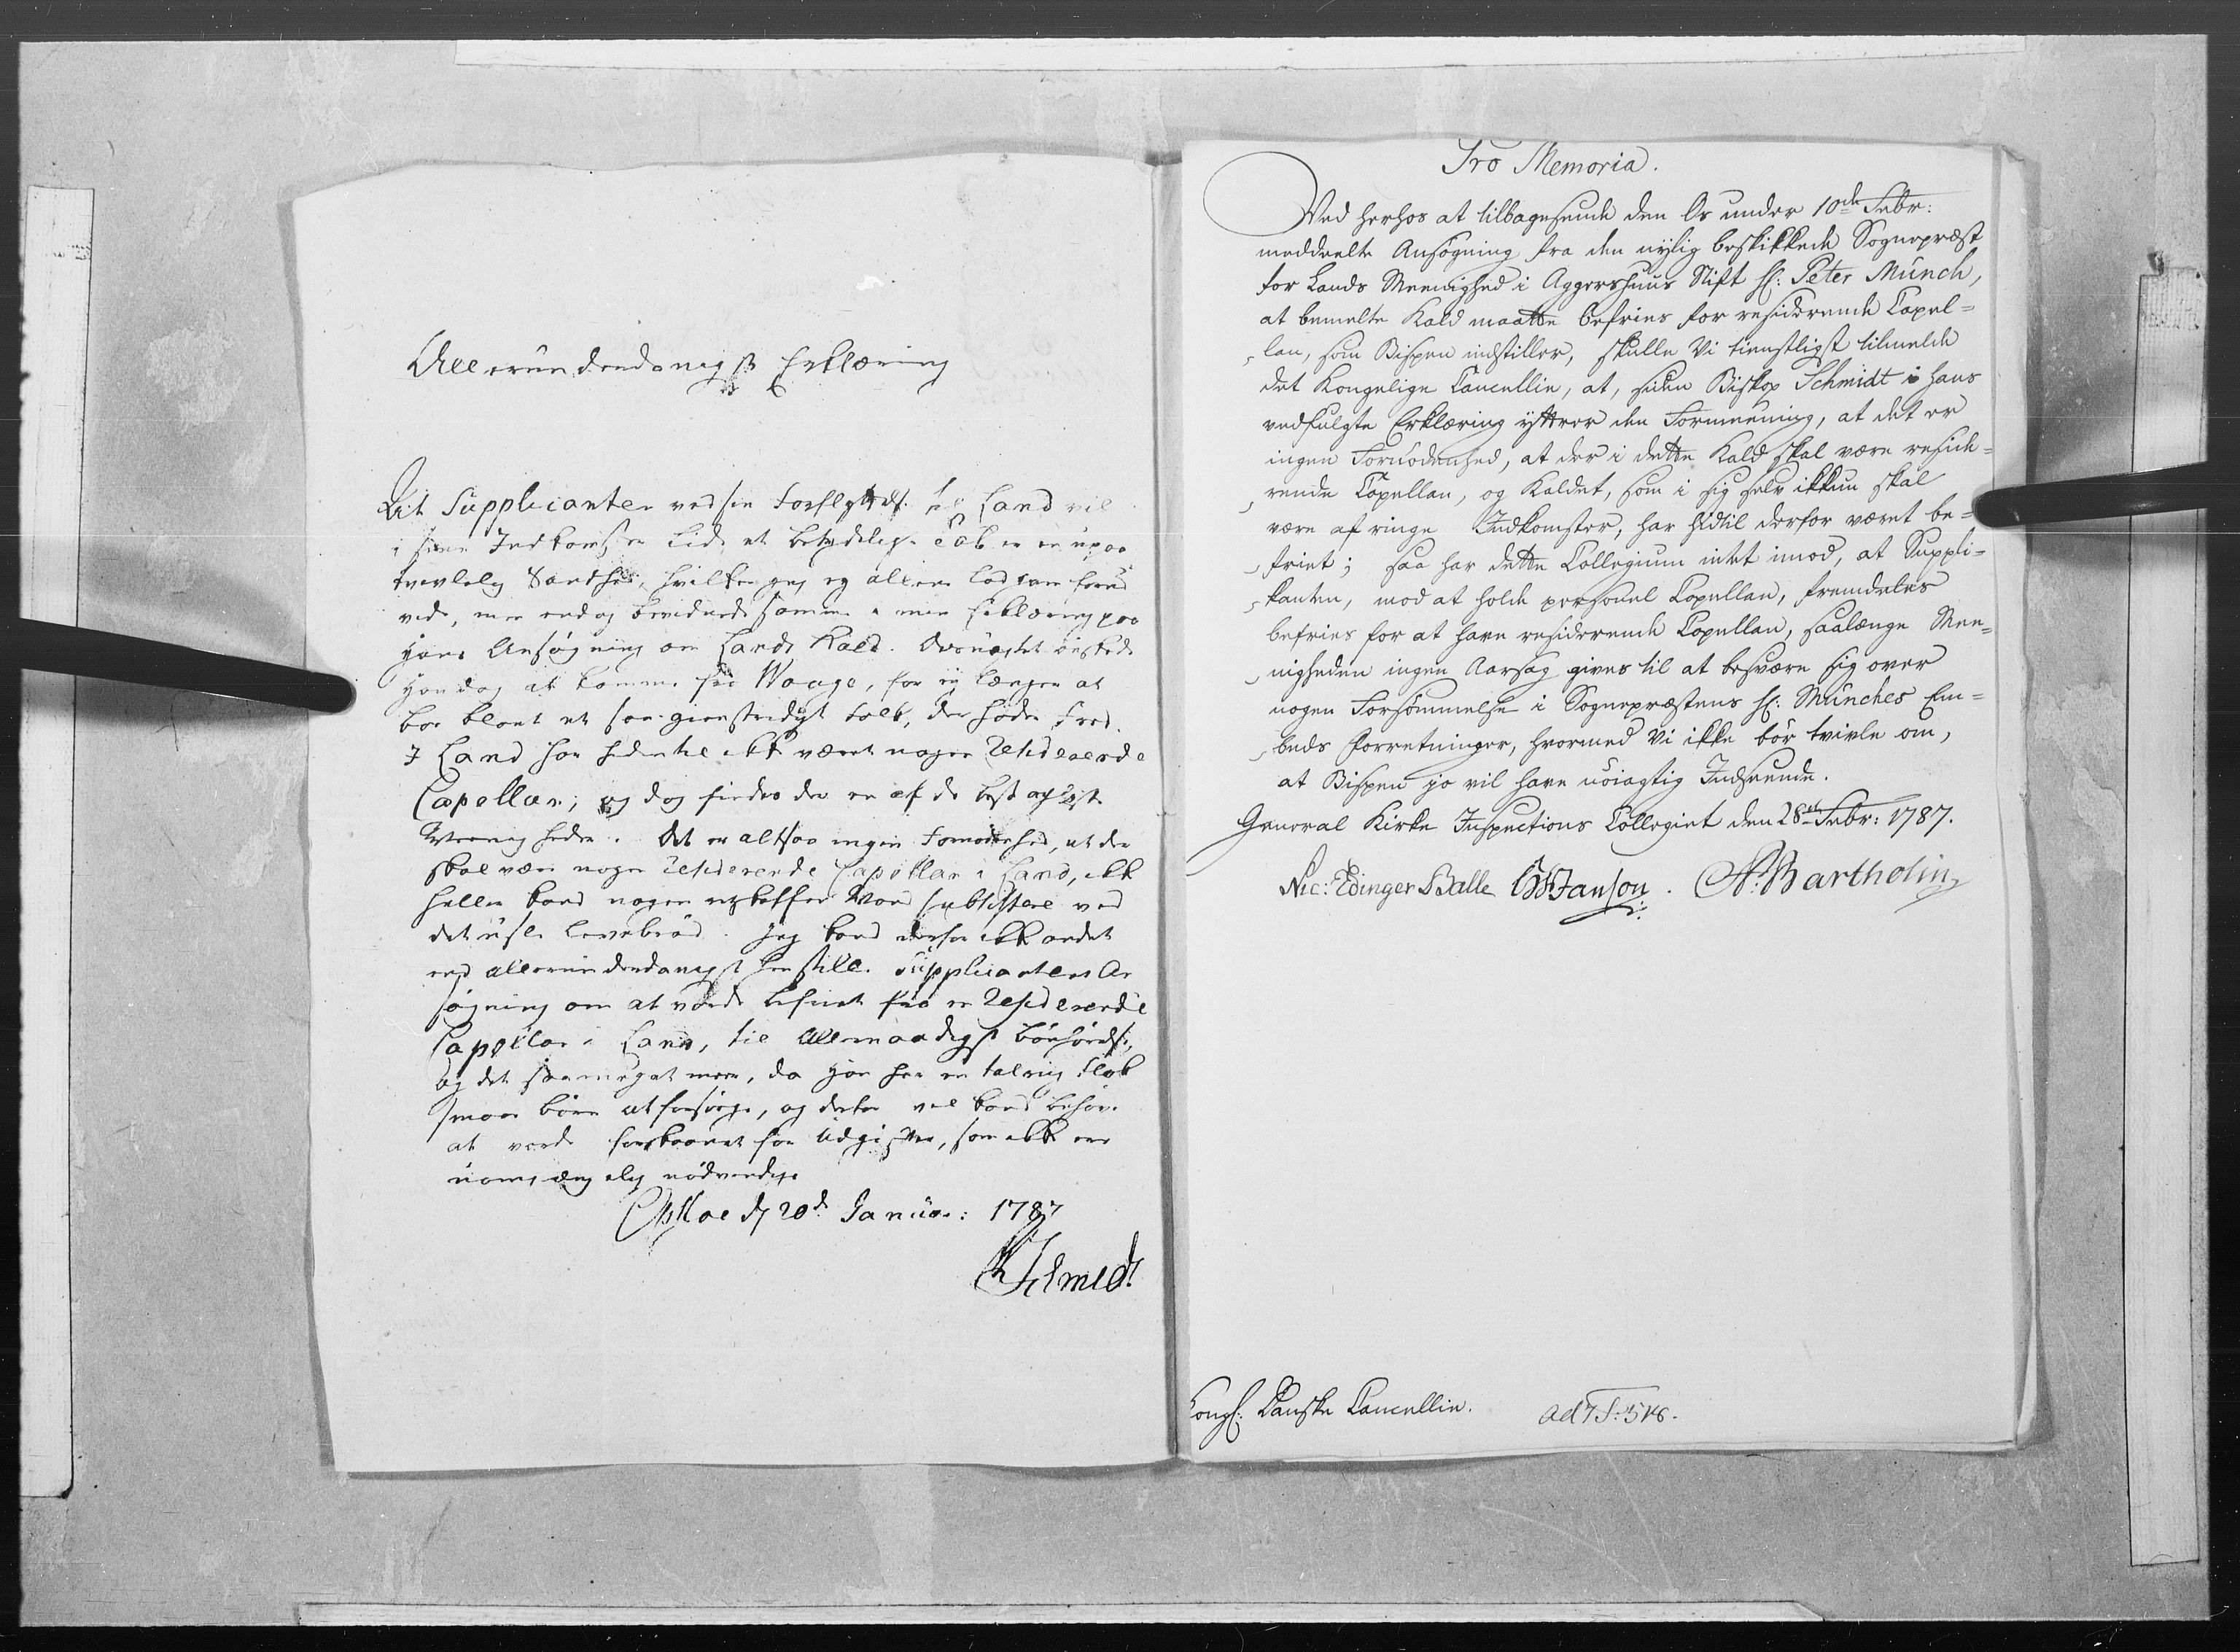 Allerunderdanigst Erklæring
At Supplicanten ved sin Forflyttelse til Land vil
i sine Indkomster lide et betydeligt Tab er en upaa
tvivlelig Sandhed, hvilket jeg og allene lod ham forud
vide, men endog bevidnede samme i min Erklæring paa
hans Ansøgning om Lands Kald. Overveiet ønskede
han dog at komme fra Waage, for ej længer at
boe blant et saa gienstridigt Folk, der
I Land har hidentil ikke været nogen Residerende
Capellan; og dog findes der en af de best oplyste
Meenigheder. Det er altsaa ingen Fornødenhed, at der
skal være nogen Residerende Capellan i Land, ikke
heller kand nogen retskaffen Mand subsistere ved
det usle Levebrød. Jeg kand derfor ikke andet
end allerunderdanigst henstille Supplicantens An
søgning om at vorde befriet fra en Residerende
Capellan i Land, til Allernaadigst bønhørelse,
og det saameget mere, da han har en talrig Flok
smaa børn at forsørge, og derfor vel kand behøve
at vorde forskaanet for Udgifter, som ikke ere
uomgængelig nødvendige
Opsloe d 20de Januar: 1787
Schmidt
Pro Memoria.
Ved herhos at tilbagesende den Os under 10de Febr:
meddeelte Ansøgning fra den nylig beskikkede Sognepræst
for Lands Meenighed i Aggershuus Stift Hr: Peter Münch,
at bemelte Kald maatte befries for residerende Capel=
lan, som Bispen indstiller, skulle Vi tienstligst tilmelde
det Kongelige Cancellie, at, siden Biskop Schmidt i hans
vedfulgte Erklæring yttrer den Formeening, at det er
ingen Fornødenhed, at der i dette Kald skal være reside=
rende Capellan, og Kaldet, som i sig selv ikkun skal
være af ringe Indkomster, har hidtil derfor været be=
friet; saa har dette Collegium intet imod, at Suppli=
kanten, mod at holde personel Capellan, fremdeles
befries for at have residerende Capellan, saalænge Mee=
nigheden ingen Aarsag gives til at besvære sig over
nogen Forsømmelse i Sognepræstens Hr: Münches Em=
beds Forretninger, hvormed Vi ikke bør tvivle om,
at Bispen jo vil have nøiagtig Indseende.
General Kirke Inspections Collegiet den 28de Febr: 1787.
Nic: Edinger Balle Janson. Bartholin
Kongl: Danske Cancellie.